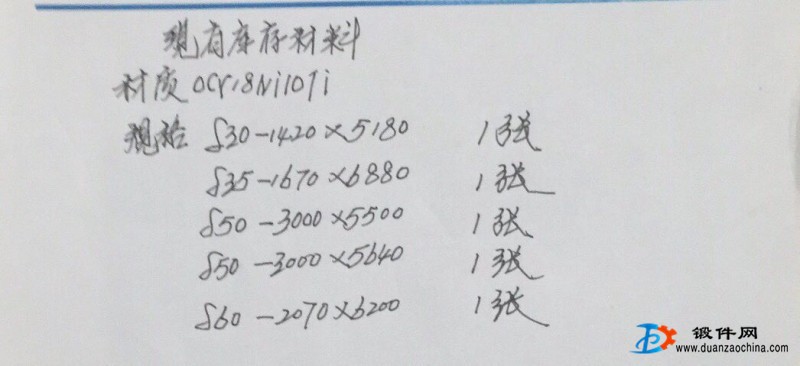 现有库存材料
材质 0Cr18Ni10Ti
规格 δ30-1420×5180 1张
δ35-1670×6880 1张
δ50-3000×5500 1张
δ50-3000×5640 1张
δ60-2070×6200 1张
锻件网
www.duanzaochina.com